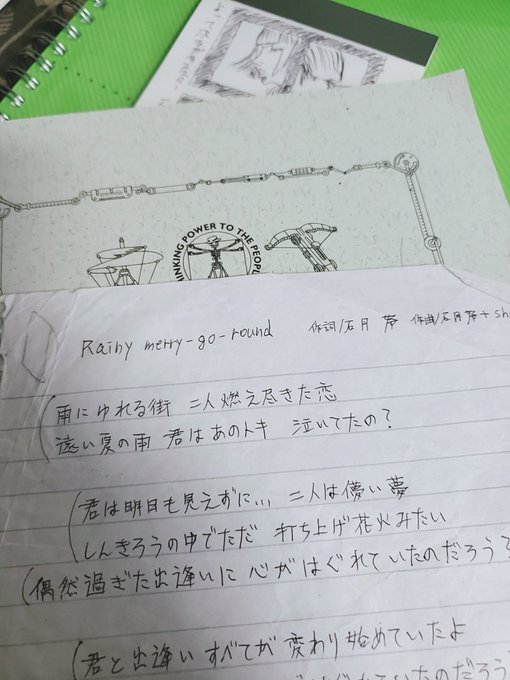 THINKING POWER TO THE PEOPLE
Rainy merry-go-round 作詞/石月 努 作曲/石月努+sh
雨にゆれる街 二人燃え尽きた恋
遠い夏の雨 君はあのトキ 泣いてたの?
君は明日も見えずに... 二人は儚い夢
しんきろうの中でただ 打ち上げ花火みたい
偶然過ぎた出逢いに 心がはぐれていたのだろう?
君と出逢い すべてが 変わり始めていたよ
はぐれていたのだろう